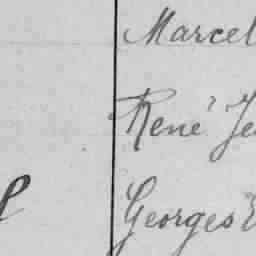 Marcel
René Je
Georges E